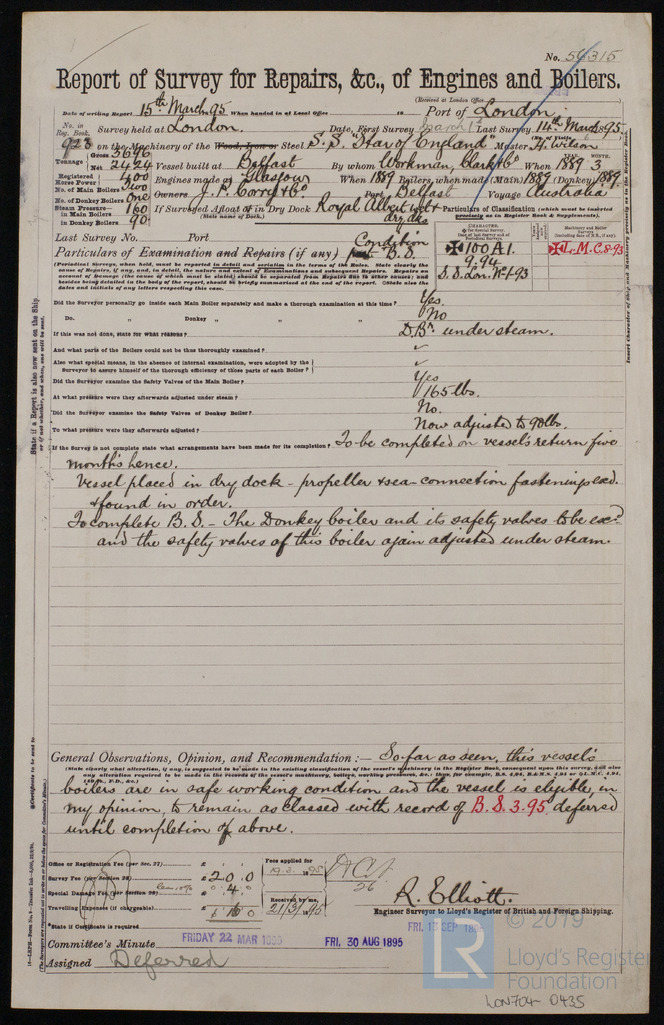 No. 56315
Report of Survey for Repairs, &c., of Engines and Boilers.
(Received at London Office
Date of writing Report 15th March 95 When handed in at Local Office 18 Port of London
No. in Reg. Book. Survey held at London. Date, First Survey March 1st Last Survey 14th March 95
923 on the Machinery of the Wood, Iron or Steel S.S. "Star of England" Master H. Wilson
Tonnage Gross 3696 Net 2424 Vessel built at Belfast By whom Workman, Clark & Co When 1889 3
Registered Horse Power 400 Engines made at Glasgow When 1889 Boilers, when made (Main) 1889 (Donkey) 1889
No. of Main Boilers Two Owners J. P. Corry & Co Port Belfast Voyage Australia
No. of Donkey Boilers One
Steam Pressure in Main Boilers 160 If Surveyed Afloat or in Dry Dock Royal Albert
(State name of Dock.) dry dks
in Donkey Boilers 90
Particulars of Classification (which must be inserted precisely as in Register Book & Supplements).
Last Survey No. Port
Particulars of Examination and Repairs (if any) Condition part B.S.
✠ 100 A1.
9.94
S.S. Lon. No 1-93
✠ L.M.C. 8-93
Did the Surveyor personally go inside each Main Boiler separately and make a thorough examination at this time? Yes.
Do. " Donkey " " " No
If this was not done, state for what reasons? D.Br. under steam.
And what parts of the Boilers could not be thus thoroughly examined? ✓
Also what special means, in the absence of internal examination, were adopted by the
Surveyor to assure himself of the thorough efficiency of those parts of each Boiler? ✓
Did the Surveyor examine the Safety Valves of the Main Boiler? Yes
At what pressure were they afterwards adjusted under steam? 165 lbs.
Did the Surveyor examine the Safety Valves of Donkey Boiler? No.
To what pressure were they afterwards adjusted? Now adjusted to 90 lbs.
If the Survey is not complete state what arrangements have been made for its completion? To be completed on vessel's return five
months hence.
Vessel placed in dry dock - propeller & sea-connection fastenings exd.
& found in order.
To complete B.S. - The Donkey boiler and its safety valves to be exd
and the safety valves of this boiler again adjusted under steam.
General Observations, Opinion, and Recommendation:— So far as seen, this vessel's
boilers are in safe working condition and the vessel is eligible, in
my opinion, to remain as classed with record of B.S. 3-95 deferred
until completion of above.
Office or Registration Fee (per Sec. 27) £
Survey Fee (per Section 28) £ 2 0.0
Special Damage Fee (per Section 28) £ 4.
Travelling Expenses (if chargeable) £
Fees applied for 19.3.1895
Received by me, 21/3/1895
26
R. Elliott.
Engineer Surveyor to Lloyd's Register of British and Foreign Shipping.
*State if Certificate is required
Committee's Minute FRIDAY 22 MAR 1895 FRI. 30 AUG 1895
Assigned Deferred
LR © 2019
Lloyd's Register
Foundation
LON704-0435
State if a Report is also now sent on the Ship.